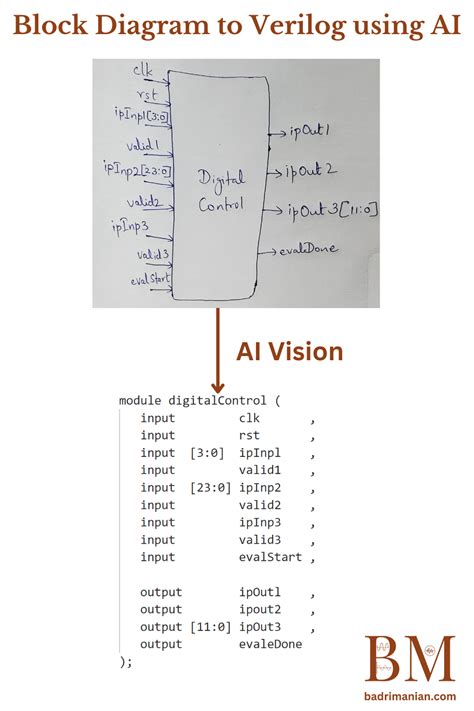 Block Diagram to Verilog using AI
clk
rst
ipInp1[3:0]
valid1
ipInp2[23:0]
valid2
ipInp3
valid3
evalStart
Digital
Control
ipOut1
ipOut2
ipOut3[11:0]
evalDone
AI Vision
module digitalControl (
input clk ,
input rst ,
input [3:0] ipInpl ,
input valid1 ,
input [23:0] ipInp2 ,
input valid2 ,
input ipInp3 ,
input valid3 ,
input evalStart ,
output ipOutl ,
output ipout2 ,
output [11:0] ipOut3 ,
output evaleDone
);
BM
badrimanian.com